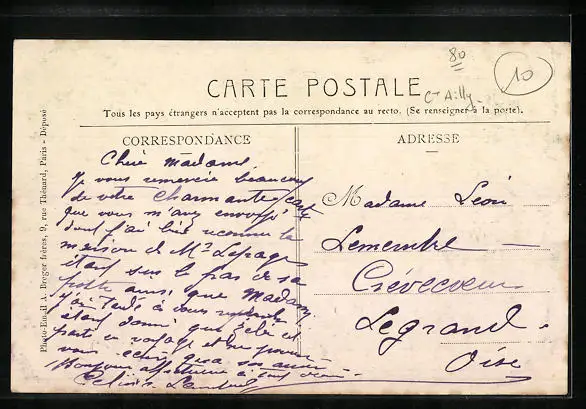 80
10
CARTE POSTALE
Ct Ailly
Tous les pays étrangers n'acceptent pas la correspondance au recto. (Se renseigner à la poste).
CORRESPONDANCE
ADRESSE
Photo-Email A. Breger frères, 9, rue Thénard, Paris - Déposé
Chère Madame,
Je vous remercie beaucoup
de votre charmante carte
que vous m'avez envoyé
dont j'ai bien reconnu la
maison de Mr Lepage
étant sur le pas de sa
porte ainsi que Madame,
J'ai tardé à vous répondre
étant donné que
part en voyage et ne
vous
Bonjour à
Madame Léon
Crèvecoeur
Legrand.
Oise